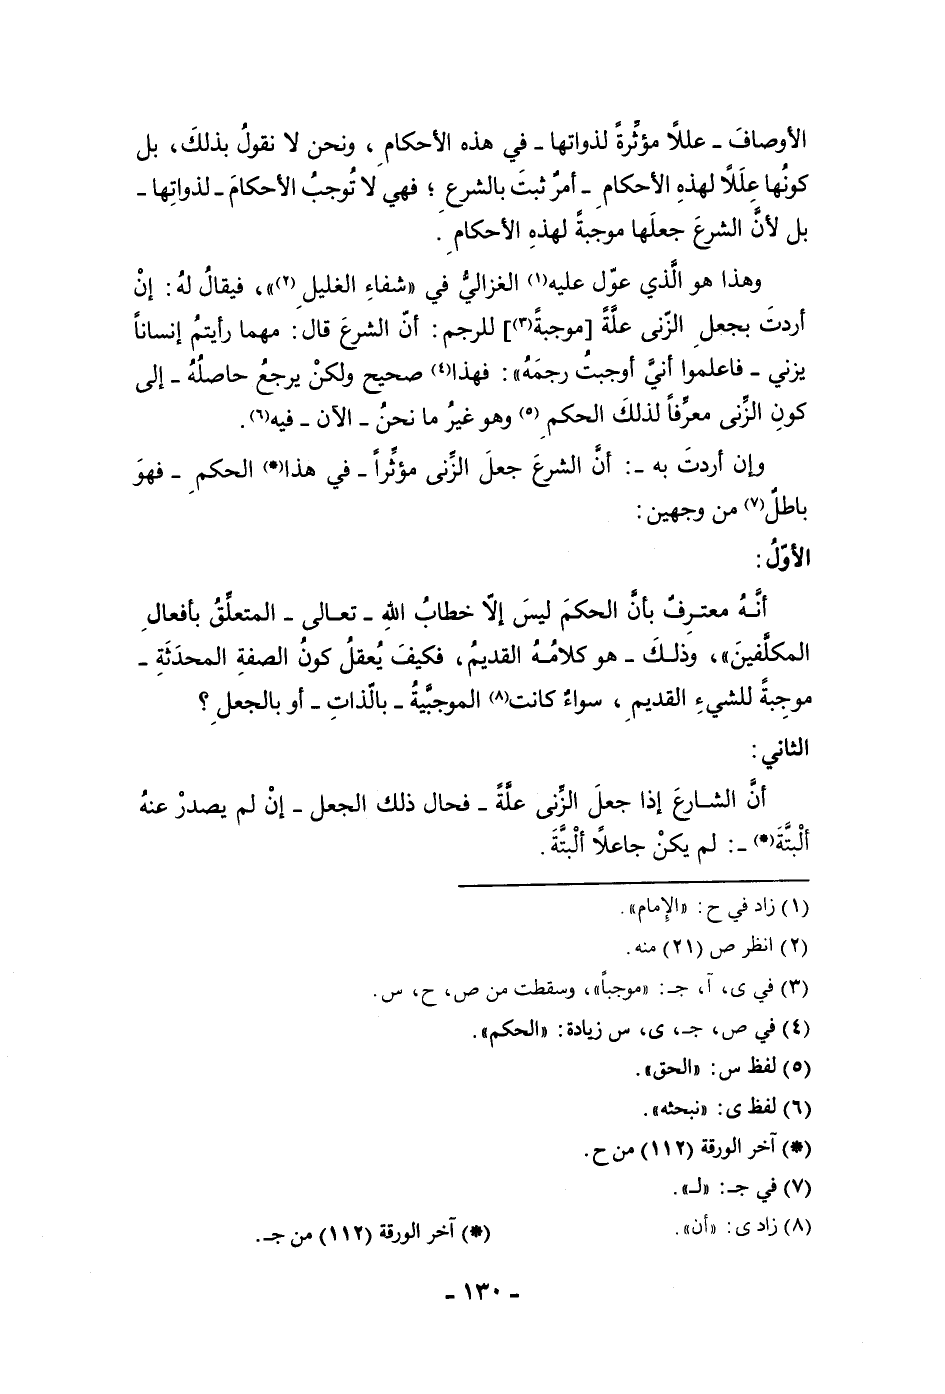 الأوصافَ ـ عللاً مؤثِّرةً لذواتها ـ في هذه الأحكامِ، ونحن لا نقولُ بذلكَ، بل
كونُها عِلَلاً لهذهِ الأحكامِ ـ أمرٌ ثبتَ بالشرعِ ؛ فهي لا تُوجبُ الأحكامَ ـ لذواتِها ـ
بل لأنَّ الشرعَ جعلَها موجبةً لهذهِ الأحكامِ .
وهذا هو الَّذي عوّل عليه(١) الغزاليُّ في «شفاءِ الغليلِ (٢)»، فيقالُ لهُ: إنْ
أردتَ بجعلِ الزّنى علَّةً [موجبةً(٣)] للرجم: أنّ الشرعَ قال: مهما رأيتمُ إنساناً
يزني ـ فاعلموا أنيَّ أوجبتُ رجمَهُ»: فهذا(٤) صحيح ولكنْ يرجعُ حاصلُهُ ـ إلى
كونِ الزِّنى معرِّفاً لذلكَ الحكمِ (٥) وهو غيرُ ما نحنُ ـ الآن ـ فيه(٦).
وإن أردتَ به ـ: أنَّ الشرعَ جعلَ الزِّنى مؤثِّراً ـ في هذا(*) الحكمِ ـ فهوَ
باطلٌ(٧) من وجهين:
الأوّلُ:
أنَّهُ معترفٌ بأنَّ الحكمَ ليسَ إلّا خطابُ اللهِ ـ تعالى ـ المتعلِّقُ بأفعالِ
المكلَّفينَ»، وذلكَ ـ هو كلامُهُ القديمُ، فكيفَ يُعقلُ كونُ الصفةِ المحدَثَةِ ـ
موجِبةً للشيءِ القديمِ ، سواءٌ كانت(٨) الموجبَّيةُ ـ بالّذاتِ ـ أو بالجعلِ ؟
الثاني:
أنَّ الشارعَ إذا جعلَ الزِّنى علَّةً ـ فحال ذلك الجعل ـ إنْ لم يصدرْ عنهُ
ألْبتَّةَ(*) ـ: لم يكنْ جاعلاً ألْبتَّةَ.
(١) زاد في ح: «الإمام».
(٢) انظر ص (٢١) منه.
(٣) في ى، آ، جـ: «موجباً»، وسقطت من ص، ح، س.
(٤) في ص، جـ، ى، س زيادة: «الحكم».
(٥) لفظ س: «الحق».
(٦) لفظ ى: «نبحثه».
(*) آخر الورقة (١١٢) من ح.
(٧) في جـ: «لـ».
(٨) زاد ى: «أن». (*) آخر الورقة (١١٢) من جـ.
ـ ١٣٠ ـ